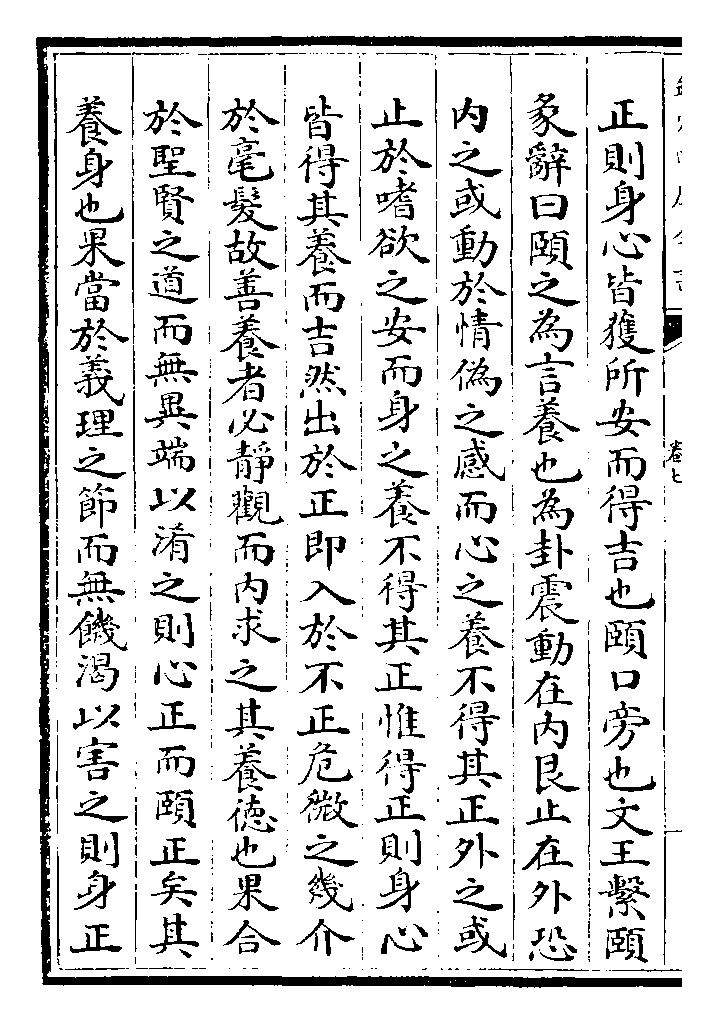 正則身心皆獲所安而得吉也頤口旁也文王繫頤
彖辭曰頤之為言養也為卦震動在内艮止在外恐
内之或動於情偽之感而心之養不得其正外之或
止於嗜欲之安而身之養不得其正惟得正則身心
皆得其養而吉然出於正即入於不正危微之幾介
於毫髮故善養者必靜觀而内求之其養徳也果合
於聖賢之道而無異端以淆之則心正而頤正矣其
養身也果當於義理之節而無饑渴以害之則身正
卷七